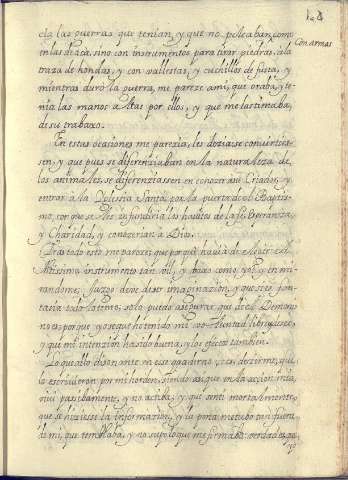 en las guerras que tenian, y que no peleaban como
en las de aca, sino con instrumentos para tirar piedras, a la
con armas
traza de hondas, y con ballestas, y cuchillos de fusta, y
mientras duro la guerra, me parese ami, que oraba, y te-
nia las manos altas por ellos, y que me lastimaba,
de su trabaxo.
En estas ocasiones me parezia, les dizia se convirties-
sen, y que pues se diferenziaban en la naturaleza de
los animales, se diferenziassen en conozer a su Criador, y
entrar a la Yglesia Santa por la puerta del Baptis-
mo, con que se les infundiria los habitos de la fe, Esperanza,
y Charidad, y conozerian a Dios.
De todo esto me parezer, que por que havia de hazer el
Altissimo instrumento tan vil, y baxo como yo, y en mi-
randome, juzgo deve de ser imaginazion, y que sea, fon-
taria todo lo tengo, solo puedo asegurar que del Demonio
no es, porque yo se que he tenido mi voluntad libre,
y que mi intenzion ha sido buena, y los efectos tambien.
Lo que alli disonante en ese quaderno, es, dezirme, que
lo escribieron por mi horden, siendo asi, que en la accion mia,
fui pasibamente, y no activa, y que senti mortalmente
que se hiziesse la informazion, y la pena me tubo tan fuera
de mi, que temblaba, y no supe lo que me firmaba: verdad es, que